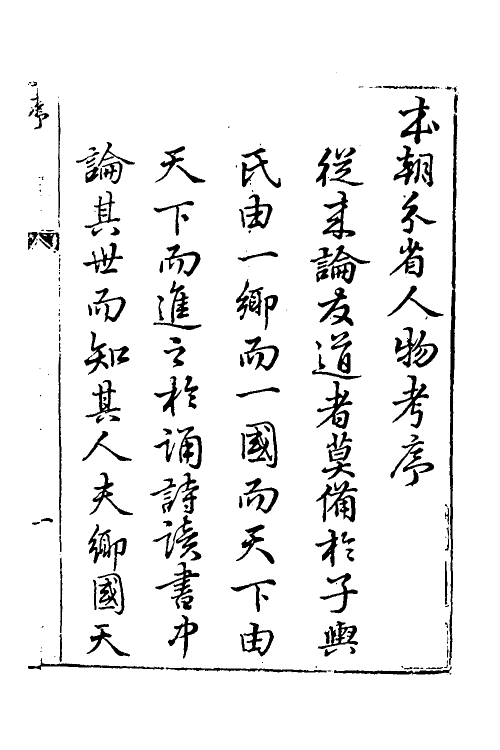 本朝分省人物考序
從來論友道者莫備於子輿
氏由一鄉而一國而天下由
天下而進之於誦詩讀書中
論其世而知其人夫鄉國天
序
一